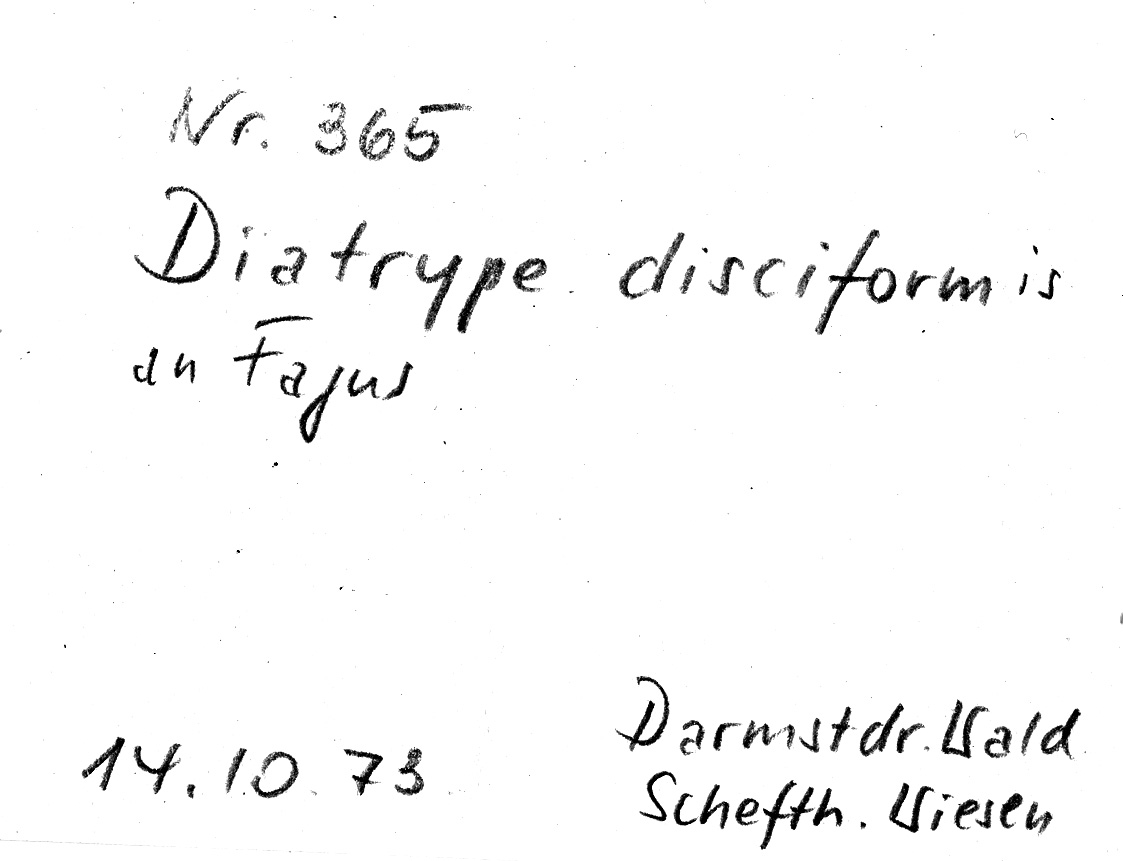 Nr. 365
Diatrype disciformis
an Fagus
14.10.73
Darmstdr. Wald
Schefth. Wiesen